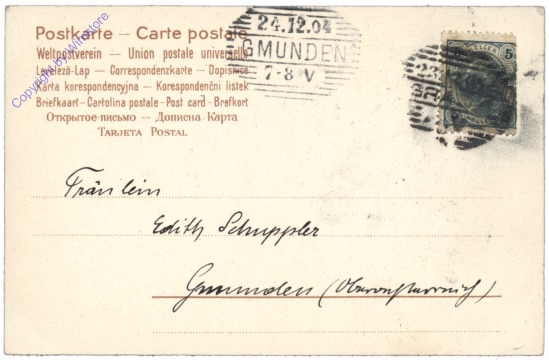 Postkarte – Carte postale
Weltpostverein – Union postale universelle
Levelező-Lap – Correspondenzkarte – Dopisnice
Karta korespondencyjna – Korespondenční listek
Briefkaart - Cartolina postale - Post card - Brefkort
Открытое письмо – Дописна Карта
Tarjeta Postal
Copyright by Winstore
24.12.04
GMUNDEN
7-8 V
5
HELLER
Fräulein
Edith Schuppler
Gmunden (Oberösterreich)